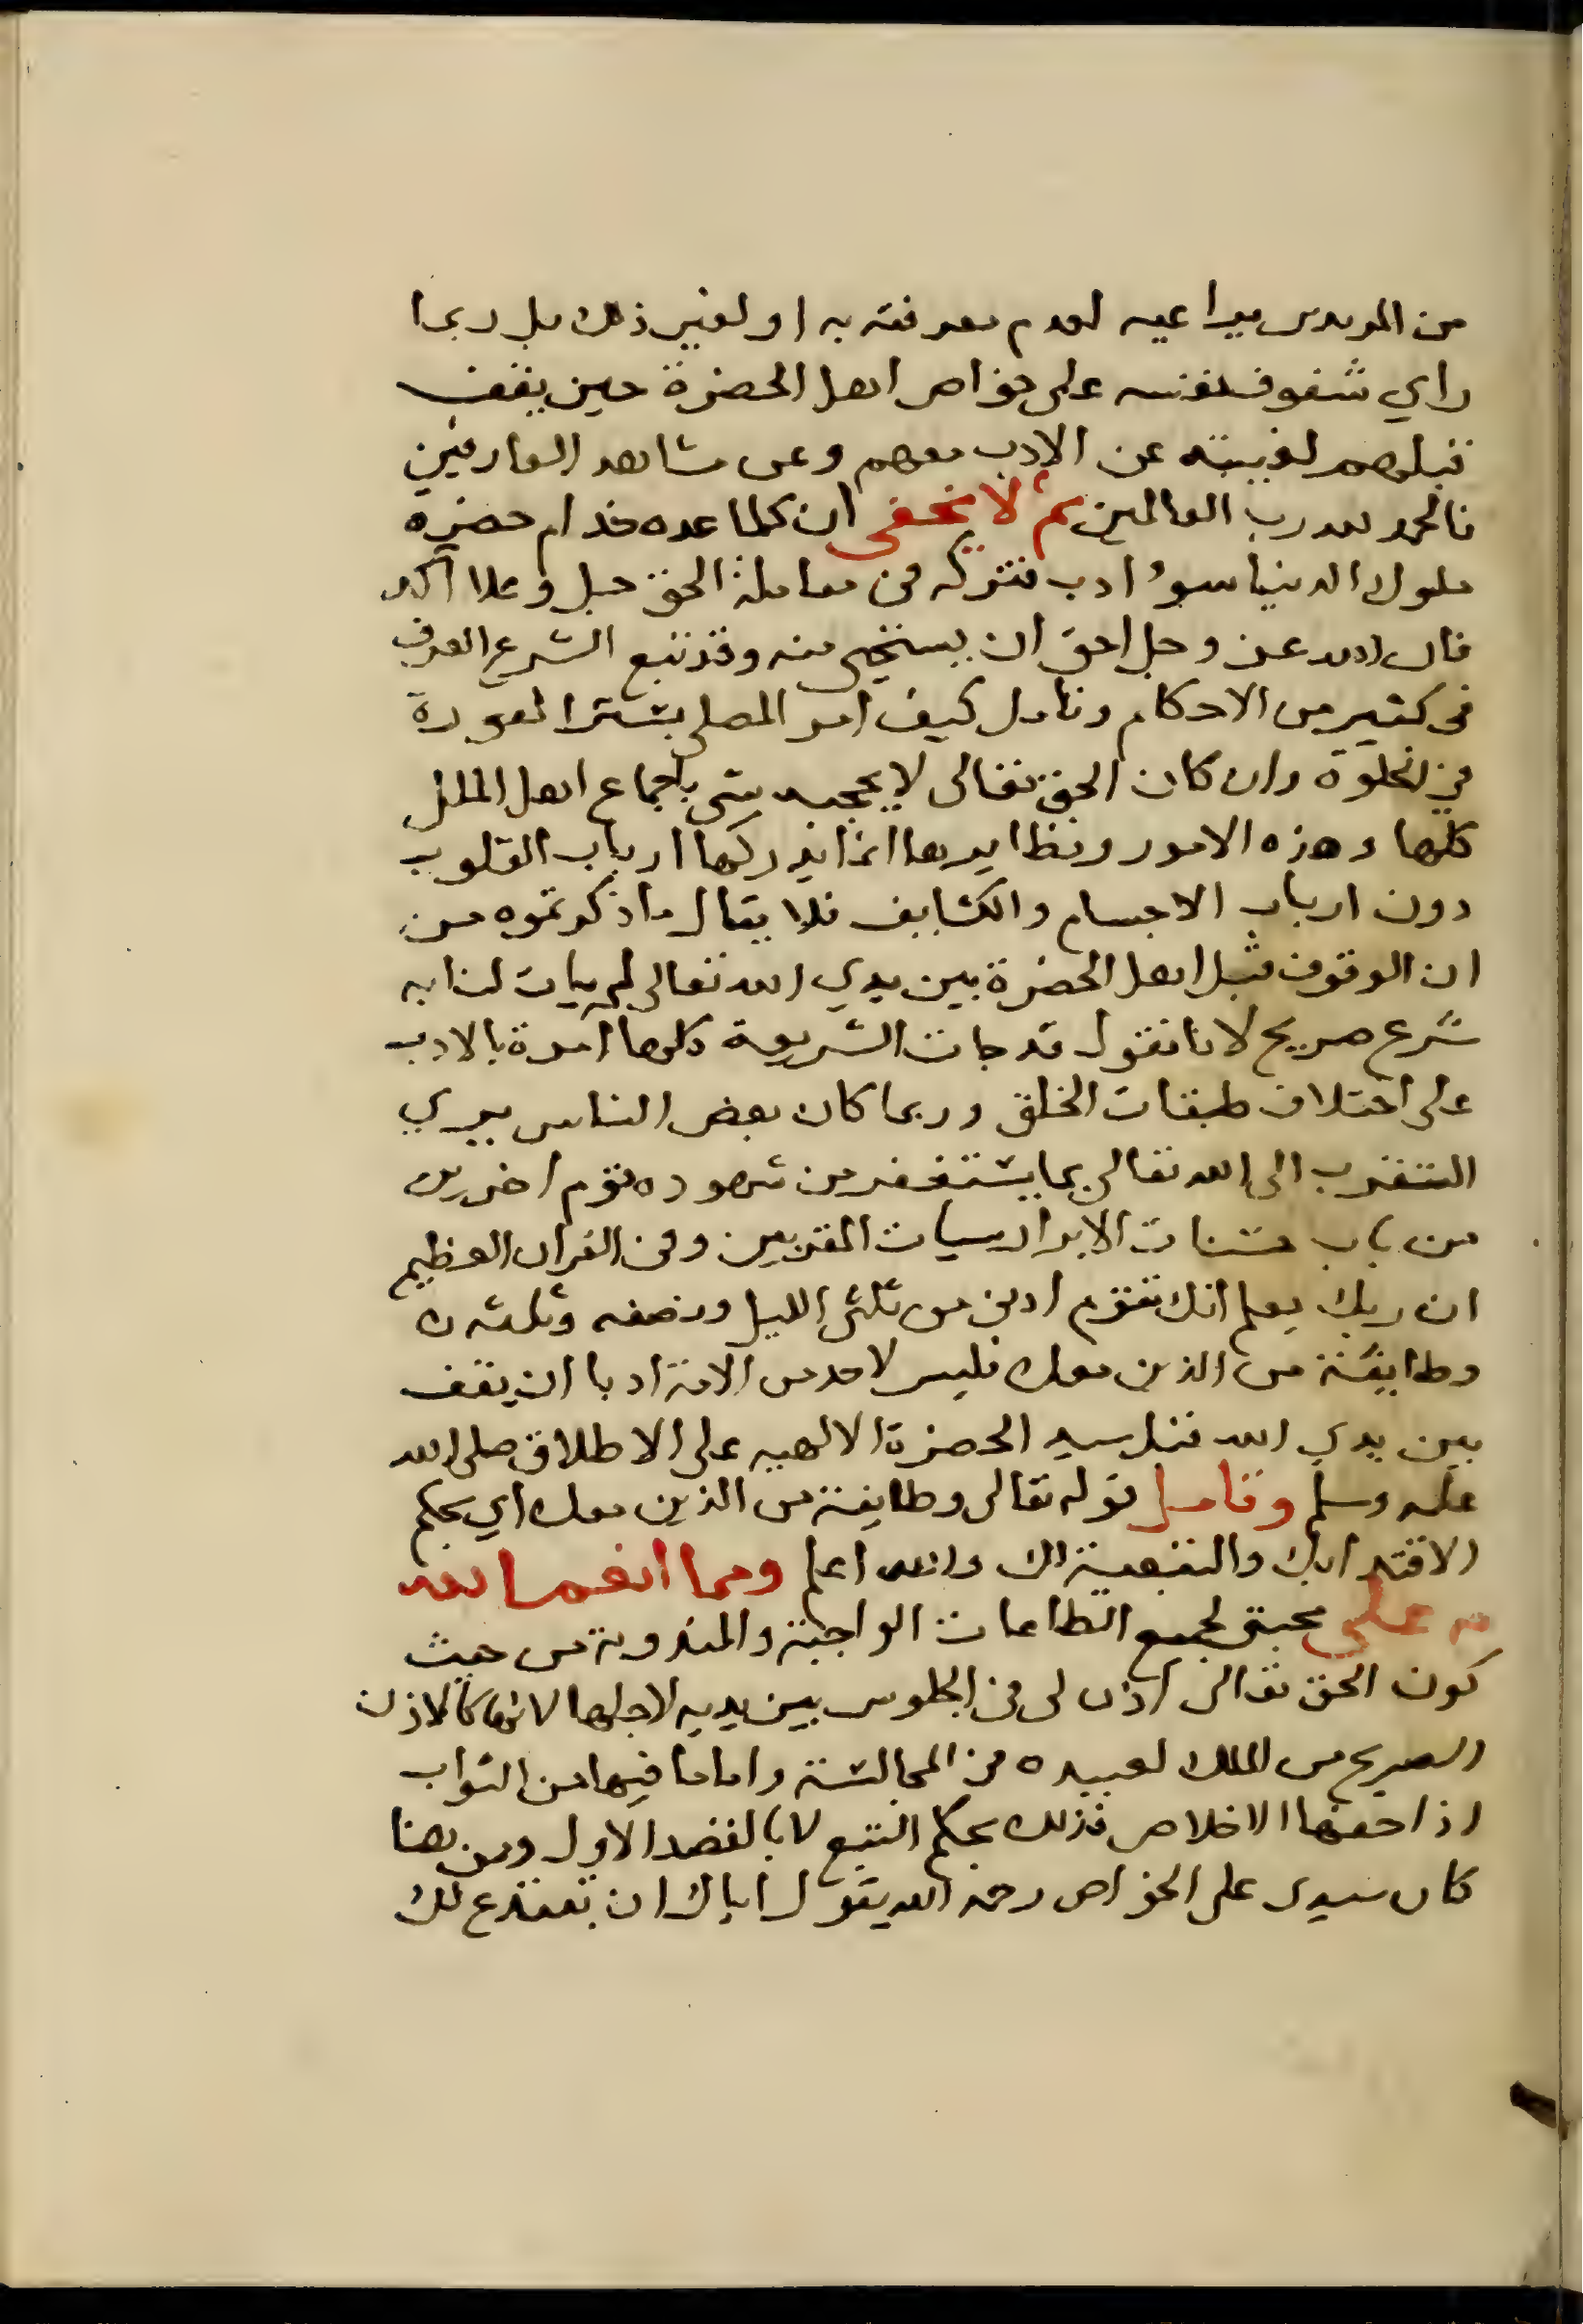 من المريدين يراعيه لعدم معرفته به او لغير ذلك بل ربما
راي شفوف نفسه على خواص اهل الحضرة حين يقف
قبلهم لغيبته عن الادب معهم وعن مشاهد العارفين
فالحمد لله رب العالمين ثم لا يخفى ان كلما عده خدام حضرة
ملوك الدنيا سوء ادب فتركه في معاملة الحق جل وعلا اكد
فان الله عز وجل احق ان يستحيى منه وقد تبع الشرع العرف
في كثير من الاحكام وتامل كيف امر المصلي بستر العورة
في الخلوة وان كان الحق تعالى لا يحجبه شي باجماع اهل الملل
كلها وهذه الامور ونظايرها انما يدركها ارباب القلوب
دون ارباب الاجسام والكثايف فلا يقال ما ذكرتموه من
ان الوقوف قبل اهل الحضرة بين يدي الله تعالى لم يات لنا به
شرع صريح لانا نقول قد جات الشريعة كلها امرة بالادب
على اختلاف طبقات الخلق وربما كان بعض الناس يري
التقرب الى الله تعالى بما يستغفر من شهوده قوم اخرين
من باب حسنات الابرار سيات المقربين وفي القران العظيم
ان ربك يعلم انك تقوم ادنى من ثلثي الليل ونصفه وثلثه
وطايفة من الذين معك فليس لاحد من الامة ادبا ان يقف
بين يدي الله قبل سيد الحضرة الالهيه على الاطلاق صلى الله
عليه وسلم وتامل قوله تعالى وطايفة من الذين معك اي بحكم
الاقتدا بك والتبعية لك والله اعلم ومما انعم الله
به علي محبتي لجميع الطاعات الواجبة والمندوبة من حيث
كون الحق تعالى اذن لى في الجلوس بين يديه لاجلها لانها كالاذن
الصريح من الملك لعبيده في المجالسة واما ما فيها من الثواب
اذا حفها الاخلاص فذلك بحكم التبع لا بالقصد الاول ومن هنا
كان سيدى على الخواص رحمه الله يقول اياك ان تقع لك